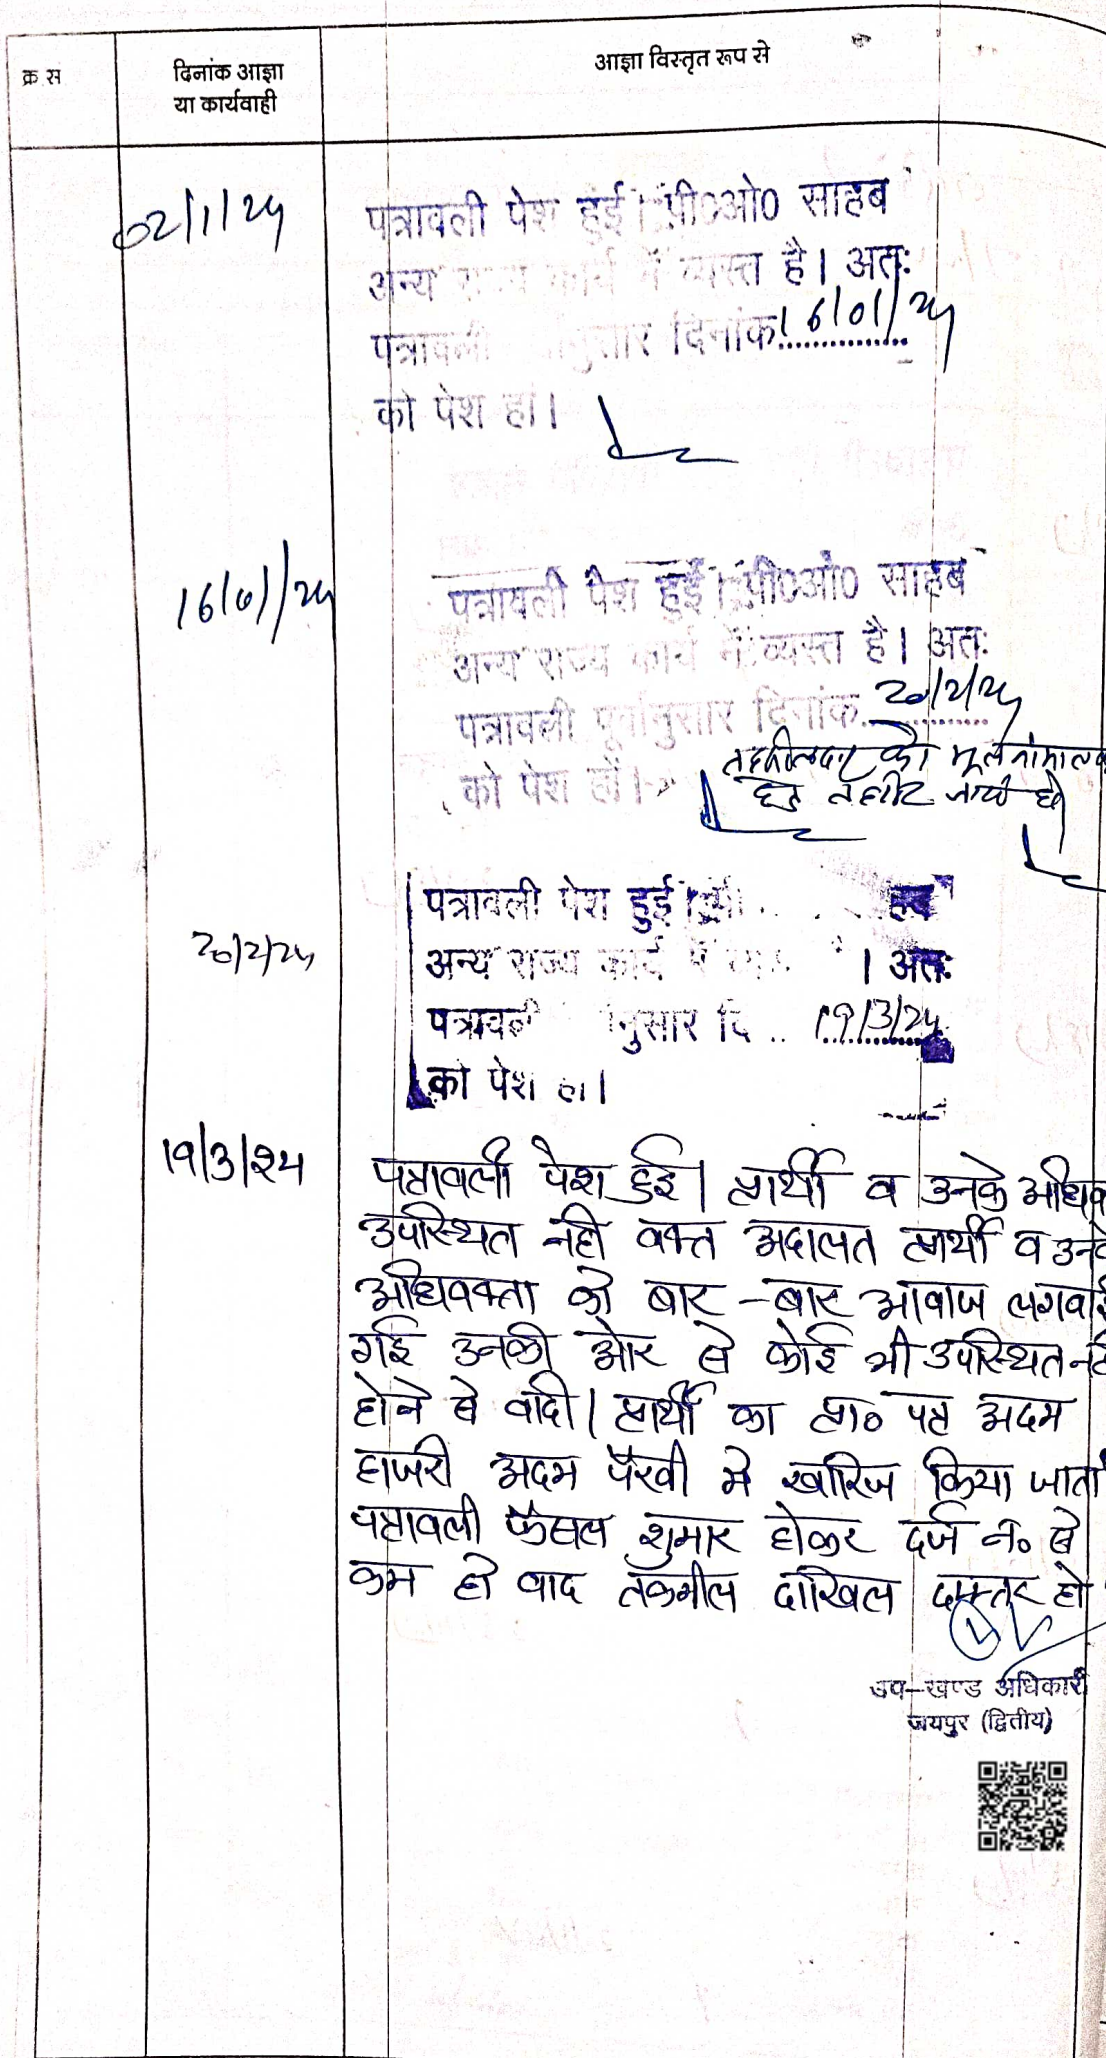 क्र.स
दिनांक आज्ञा
या कार्यवाही
आज्ञा विस्तृत रूप से
02/1/24
पत्रावली पेश हुई। पी०ओ० साहब
अन्य राज्य कार्य में व्यस्त है। अतः
पत्रावली दिनांक 16/01/24
को पेश हो।
16/01/24
पत्रावली पेश हुई। पी०ओ० साहब
अन्य राज्य कार्य में व्यस्त है। अतः
पत्रावली पूर्वानुसार दिनांक 20/2/24
को पेश हों।
तहसीलदार को मूल
हेतु तहरीर जारी हो
20/2/24
पत्रावली पेश हुई।
अन्य राज्य कार्य । अतः
पत्रावली 19/3/24
को पेश हो।
19/3/24
पत्रावली पेश हुई। प्रार्थी व उनके
उपस्थित नही वक्त अदालत प्रार्थी व
अधिवक्ता को बार-बार आवाज लगवाई
गई उनकी ओर से कोई भी उपस्थित
होने से वादी/प्रार्थी का प्रा० पत्र अदम
हाजरी अदम पैरवी मे खारिज किया जाता
पत्रावली फैसल शुमार होकर दर्ज नं० से
कम हो वाद तकमील दाखिल दफ्तर हो
उप-खण्ड अधिकारी
जयपुर (द्वितीय)